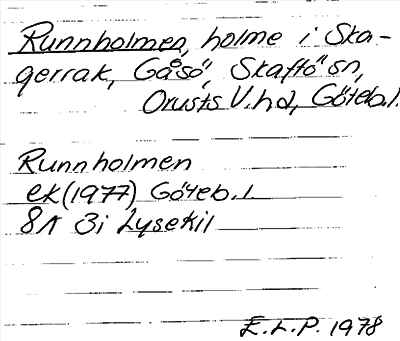 Runnholmen, holme i Ska-
gerrak, Gåsö, Skaftö sn,
Orusts V. hd, Göteb.l.
Runnholmen
ek (1977) Göteb.l.
8A 3i Lysekil
E.L.P. 1978